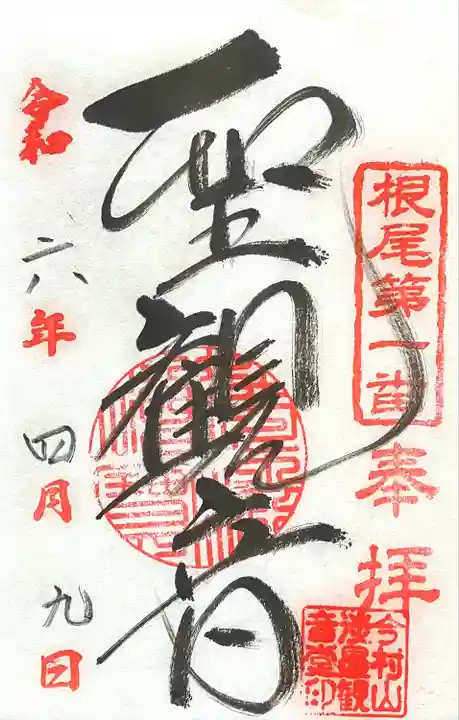 根尾第一番
奉拝
聖観音
今村山
湊昌観
音堂印
令和六年四月九日